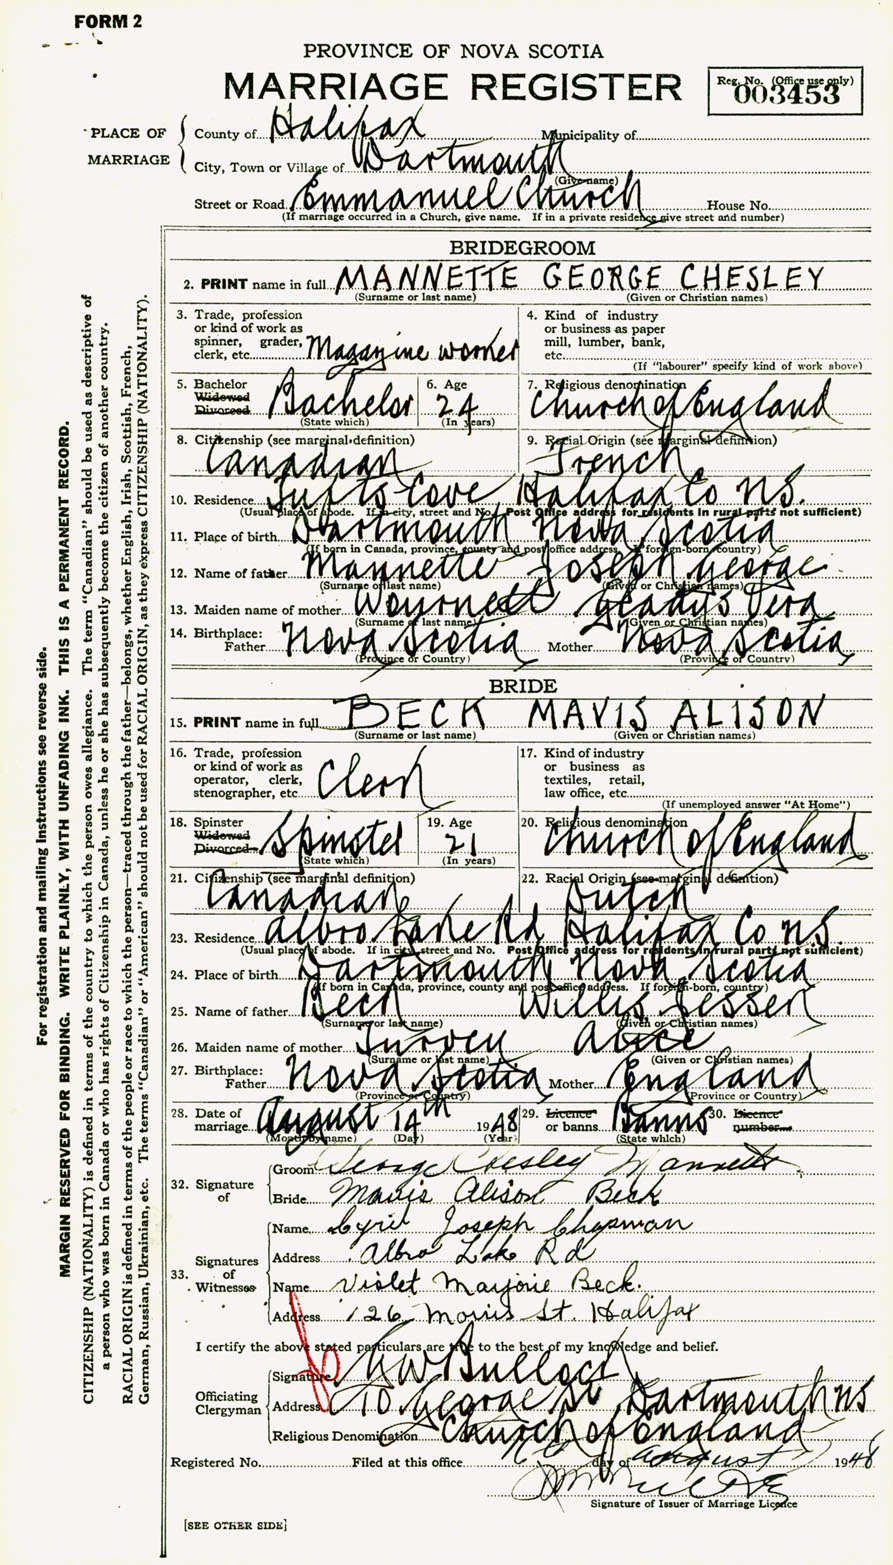 FORM 2
PROVINCE OF NOVA SCOTIA
MARRIAGE REGISTER
Reg. No. (Office use only)
003453
PLACE OF MARRIAGE
County of Halifax Municipality of
City, Town or Village of Dartmouth
(Give name)
Street or Road Emmanuel Church House No.
(If marriage occurred in a Church, give name. If in a private residence give street and number)
BRIDEGROOM
2. PRINT name in full MANNETTE GEORGE CHESLEY
(Surname or last name) (Given or Christian names)
3. Trade, profession or kind of work as spinner, grader, clerk, etc. Magazine worker
4. Kind of industry or business as paper mill, lumber, bank, etc.
(If "labourer" specify kind of work above)
5. Bachelor Widowed Divorced Bachelor
(State which)
6. Age 24
(In years)
7. Religious denomination Church of England
8. Citizenship (see marginal definition) Canadian
9. Racial Origin (see marginal definition) French
10. Residence Cove Halifax Co NS.
(Usual place of abode. If in city, street and No. Post Office address for residents in rural parts not sufficient)
11. Place of birth Dartmouth Nova Scotia
(If born in Canada, province, county and post office address. If foreign-born, country)
12. Name of father Mannette Joseph George
(Surname or last name) (Given or Christian names)
13. Maiden name of mother Gladys Vera
(Surname or last name) (Given or Christian names)
14. Birthplace: Father Nova Scotia Mother Nova Scotia
(Province or Country) (Province or Country)
BRIDE
15. PRINT name in full BECK MAVIS ALISON
(Surname or last name) (Given or Christian names)
16. Trade, profession or kind of work as operator, clerk, stenographer, etc Clerk
17. Kind of industry or business as textiles, retail, law office, etc.
(If unemployed answer "At Home")
18. Spinster Widowed Divorced Spinster
(State which)
19. Age 21
(In years)
20. Religious denomination Church of England
21. Citizenship (see marginal definition) Canadian
22. Racial Origin (see marginal definition) Dutch
23. Residence Albro Lake Rd Halifax Co NS.
(Usual place of abode. If in city, street and No. Post Office address for residents in rural parts not sufficient)
24. Place of birth Dartmouth Nova Scotia
(If born in Canada, province, county and post office address. If foreign-born, country)
25. Name of father Beck Willis
(Surname or last name) (Given or Christian names)
26. Maiden name of mother Alice
(Surname or last name) (Given or Christian names)
27. Birthplace: Father Nova Scotia Mother England
(Province or Country) (Province or Country)
28. Date of marriage August 14th 1948
(Month by name) (Day) (Year)
29. Licence or banns Banns
(State which)
30. Licence number
32. Signature of
Groom George Chesley Mannette
Bride Mavis Alison Beck
33. Signatures of Witnesses
Name Cyril Joseph Chapman
Address Albro Lake Rd
Name Violet Marjorie Beck.
Address 126 Morris St. Halifax
I certify the above stated particulars are true to the best of my knowledge and belief.
Officiating Clergyman
Signature W Bullock
Address 10 George St Dartmouth NS
Religious Denomination Church of England
Registered No. Filed at this office day of August 1948
Signature of Issuer of Marriage Licence
[SEE OTHER SIDE]
For registration and mailing instructions see reverse side.
MARGIN RESERVED FOR BINDING. WRITE PLAINLY, WITH UNFADING INK. THIS IS A PERMANENT RECORD.
CITIZENSHIP (NATIONALITY) is defined in terms of the country to which the person owes allegiance. The term "Canadian" should be used as descriptive of
a person who was born in Canada or who has rights of Citizenship in Canada, unless he or she has subsequently become the citizen of another country.
RACIAL ORIGIN is defined in terms of the people or race to which the person—traced through the father—belongs, whether English, Irish, Scottish, French,
German, Russian, Ukrainian, etc. The terms "Canadian" or "American" should not be used for RACIAL ORIGIN, as they express CITIZENSHIP (NATIONALITY).